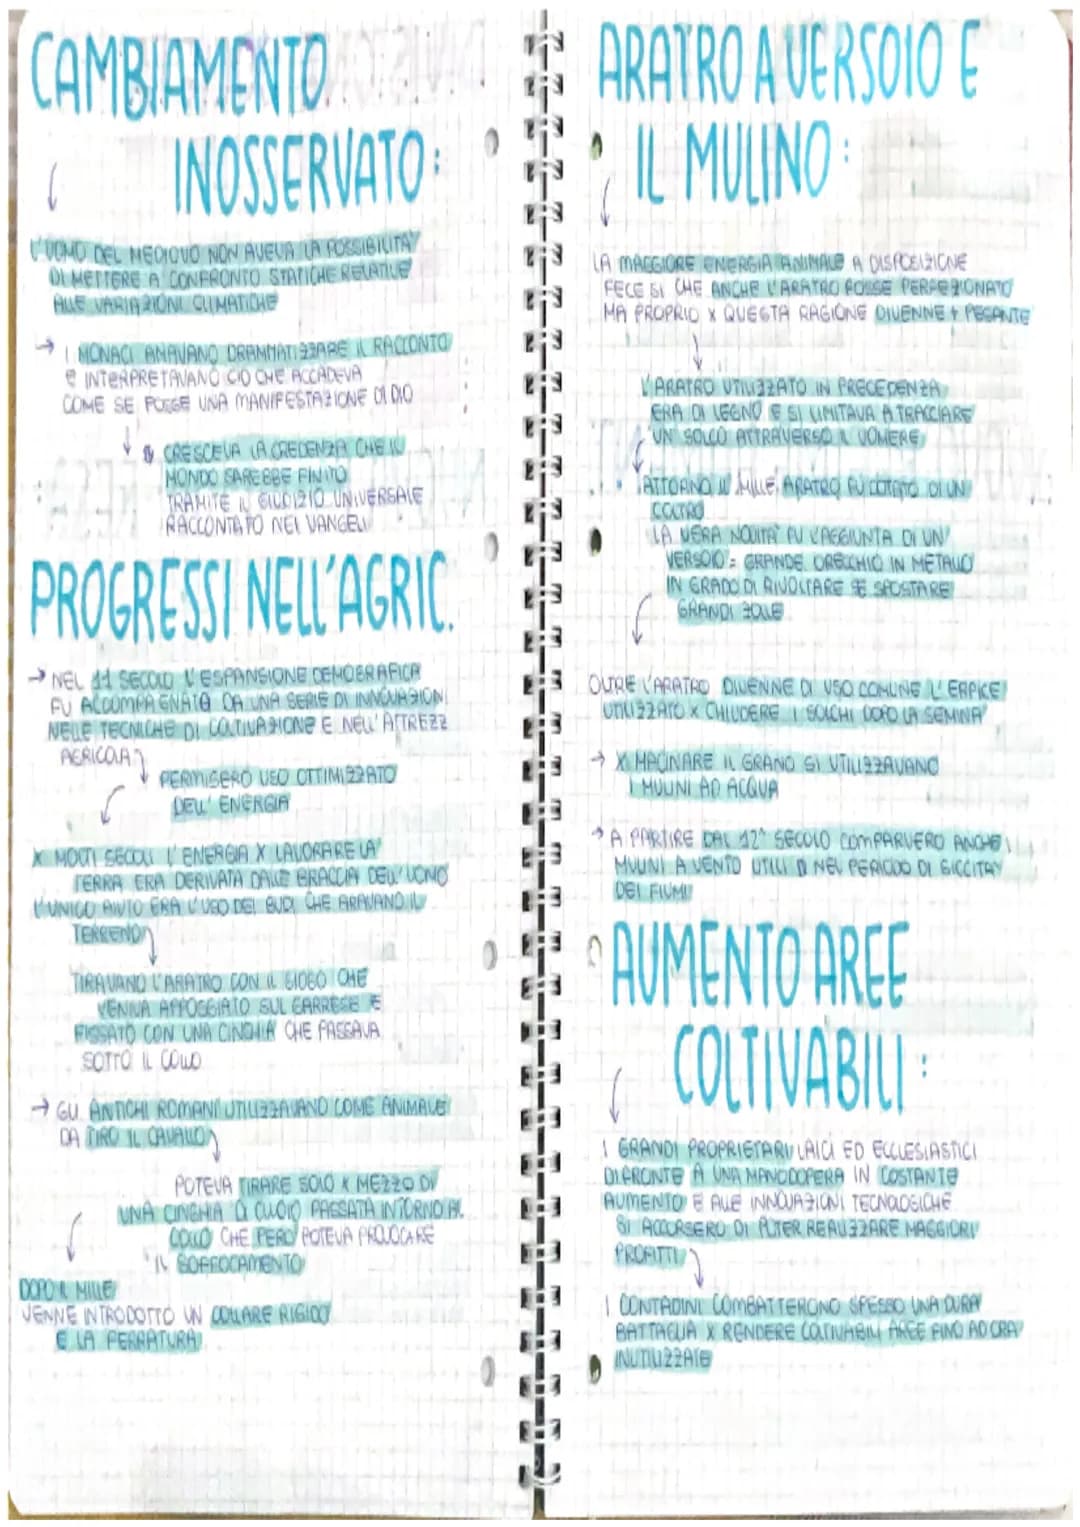 CAMBIAMENTO
INOSSERVATO:
L'UOMO DEL MEDIOVO NON AVEVA LA POSSIBILITA'
DI METTERE A CONFRONTO STATICHE RELATIVE
ALLE VARIAZIONI CLIMATICHE
→ I MONACI AMAVANO DRAMMATIZZARE IL RACCONTO
E INTERPRETAVANO CIO CHE ACCADEVA
COME SE FOSSE UNA MANIFESTAZIONE DI DIO
CRESCEVA LA CREDENZA CHE IL
MONDO SAREBBE FINITO
TRAMITE IL GIUDIZIO UNIVERSALE
RACCONTATO NEI VANGELI
PROGRESSI NELL'AGRIC.
→ NEL 11 SECOLO L'ESPANSIONE DEMOGRAFICA
FU ACCOMPAGNATA DA UNA SERIE DI INNOVAZIONI
NELLE TECNICHE DI COLTIVAZIONE E NELL'ATTREZZ
AGRICOLA
PERMISERO USO OTTIMIZZATO
DELL'ENERGIA
X MOLTI SECOLI L'ENERGIA X LAVORARE LA
TERRA ERA DERIVATA DALLE BRACCIA DELL'UOMO
L'UNICO AIUTO ERA L'USO DEI BUOI CHE ARAVANO IL
TERRENO
TIRAVANO L'ARATRO CON IL GIOGO CHE
VENIVA APPOGGIATO SUL GARRESE E
FISSATO CON UNA CINGHIA CHE PASSAVA
SOTTO IL COLLO
→ GLI ANTICHI ROMANI UTILIZZAVANO COME ANIMALE
DA TIRO IL CAVALLO
POTEVA TIRARE SOLO X MEZZO DI
UNA CINGHIA DI CUOIO PASSATA INTORNO AL
COLLO CHE PERO' POTEVA PROVOCARE
IL SOFFOCAMENTO
DOPO IL MILLE
VENNE INTRODOTTO UN COLLARE RIGIDO
E LA FERRATURA
ARATRO A VERSOIO E
IL MULINO:
LA MAGGIORE ENERGIA ANIMALE A DISPOSIZIONE
FECE SI CHE ANCHE L'ARATRO FOSSE PERFEZIONATO
MA PROPRIO X QUESTA RAGIONE DIVENNE + PESANTE
L'ARATRO UTILIZZATO IN PRECEDENZA
ERA DI LEGNO E SI LIMITAVA A TRACCIARE
UN SOLCO ATTRAVERSO IL VOMERE
ATTORNO IL MILLE, ARATRO FU DOTATO DI UN
COLTRO
LA VERA NOVITA' FU L'AGGIUNTA DI UN
VERSOIO = GRANDE ORECCHIO IN METALLO
IN GRADO DI RIVOLTARE E SPOSTARE
GRANDI ZOLLE
OLTRE L'ARATRO DIVENNE DI USO COMUNE L'ERPICE
UTILIZZATO X CHIUDERE I SOLCHI DOPO LA SEMINA
→ X MACINARE IL GRANO SI UTILIZZAVANO
I MULINI AD ACQUA
→ A PARTIRE DAL 12° SECOLO COMPARVERO ANCHE I
MULINI A VENTO UTILI NEL PERIODO DI SICCITA'
DEI FIUMI
AUMENTO AREE
COLTIVABILI:
I GRANDI PROPRIETARI LAICI ED ECCLESIASTICI
DI FRONTE A UNA MANODOPERA IN COSTANTE
AUMENTO E ALLE INNOVAZIONI TECNOLOGICHE
SI ACCORSERO DI POTER REALIZZARE MAGGIORI
PROFITTI
I CONTADINI COMBATTERONO SPESSO UNA DURA
BATTAGLIA X RENDERE COLTIVABILI AREE FINO AD ORA
INUTILIZZATE